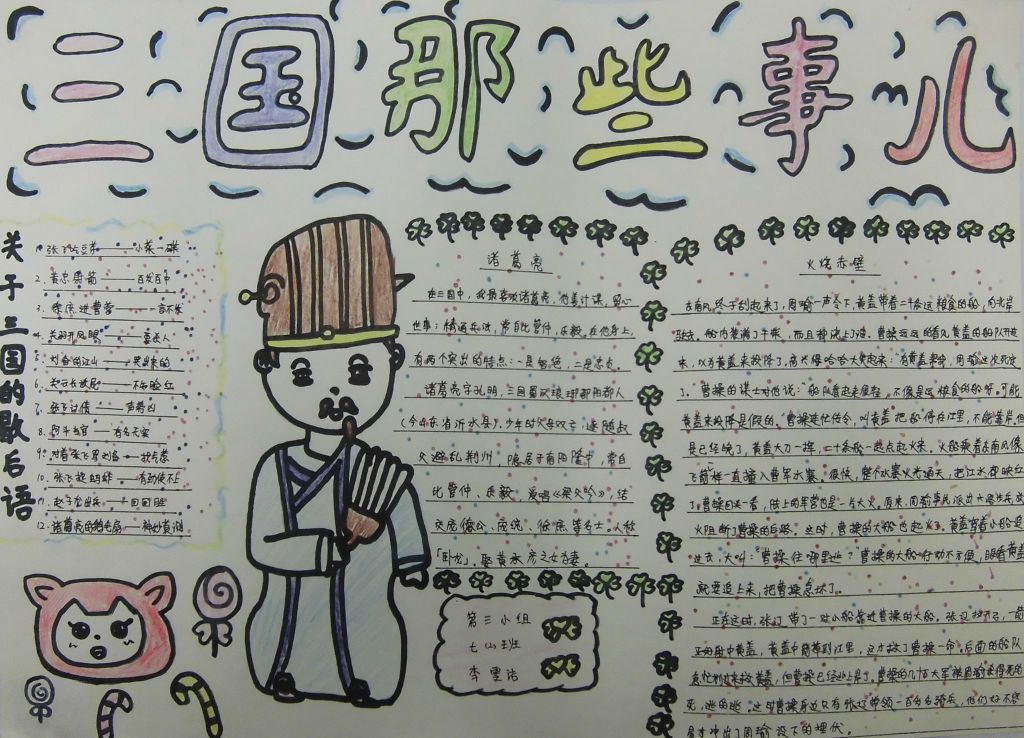 三国那些事儿
关于三国的歇后语
1. 张飞吃豆芽——小菜一碟
2. 黄忠射箭——百发百中
3. 徐庶进曹营——一言不发
4. 关羽开凤眼——要杀人
5. 刘备的江山——哭出来的
6. 关云长放屁——不知脸红
7. 张飞讨债——声势凶
8. 阿斗当官——有名无实
9. 对着张飞骂刘备——找气惹
10. 张飞 ——有劲使不上
11. 赵子龙出兵——回回胜
12. 诸葛亮的鹅毛扇——神妙莫测
诸葛亮
在三国中，我最喜欢诸葛亮，他善计谋，留心
世事；精通兵法，常自比管仲、乐毅。在他身上，
有两个突出的特点：一是智绝，二是忠贞。
诸葛亮字孔明，三国蜀汉琅琊郡阳都人
（今山东省沂水县），少年时父母双亡，逢随叔
父避乱荆州，隐居于南阳隆中，常自
比管仲、乐毅，爱唱《梁父吟》，结
交庞德公、庞统、徐庶等名士。人称
「卧龙」。娶黄承彦之女为妻。
第三小组
七（ ）班
李雯洁
火烧赤壁
东南风终于刮起来了，周瑜一声令下，黄盖带着二十条运粮食的船，向北岸
驶去。船内装满了干柴，而且都浇上了油。曹操远远地看见黄盖的船队开过
来，以为黄盖来投降了，高兴得哈哈大笑起来：“有黄盖来降，周瑜这次死定
了。”曹操的谋士对他说：“船队看起来很轻，不像是运粮食的船呀，可能
黄盖来投降是假的。”曹操连忙传令，叫黄盖把船停在江里，不能靠岸。但
是已经晚了，黄盖大刀一挥，二十条船一起点起火来。火船乘着东南风像
飞箭样一直撞入曹军水寨。很快，整个水寨火光通天，把江水都映红
了。曹操回头一看，陆上的军营也是一片大火。原来，周瑜事先派出六路兵马放
火阻断了曹操的后路。这时，曹操的大船也起火了，黄盖带着小船追
过去，大叫：“曹操往哪里逃？”曹操的大船行动不方便，眼看黄盖
就要追上来，把曹操急坏了。
正在这时，张辽带了一对小船靠近曹操的大船。张辽拉开弓，一箭
正好射中黄盖，黄盖中箭落到江里，这才救了曹操一命。后面的船队
急忙划过来救黄盖，但曹操已经逃上岸了。曹操的几十万大军被周瑜杀得死的
死，逃的逃。这时曹操身边只有张辽带领一百多名骑兵，他们好不容
易才冲出了周瑜设下的埋伏。